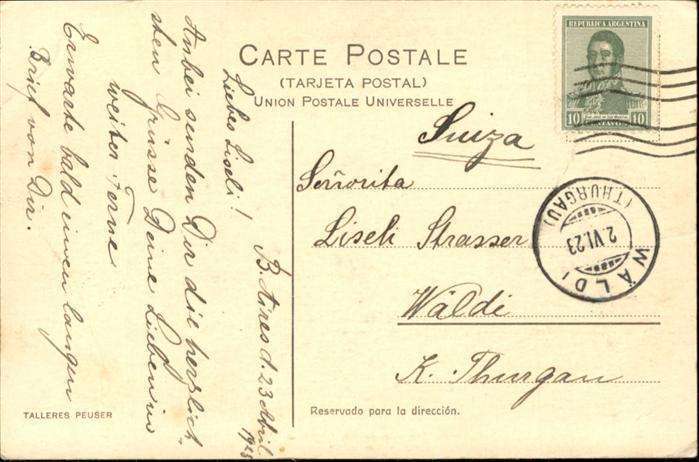 CARTE POSTALE
(TARJETA POSTAL)
UNION POSTALE UNIVERSELLE
REPUBLICA ARGENTINA
10 CENTAVOS 10
B. Aires d. 23 Abril
Liebes Liseli!
Anbei senden Dir die herzlich
sten Grüsse Deine Lieben in
weiter Ferne
Erwarte bald einen langen
Brief von Dir.
Suiza
Señorita
Liseli Strasser
Wäldi
K. Thurgau
WÄLDI
2.VI.23
(THURGAU)
TALLERES PEUSER
Reservado para la dirección.